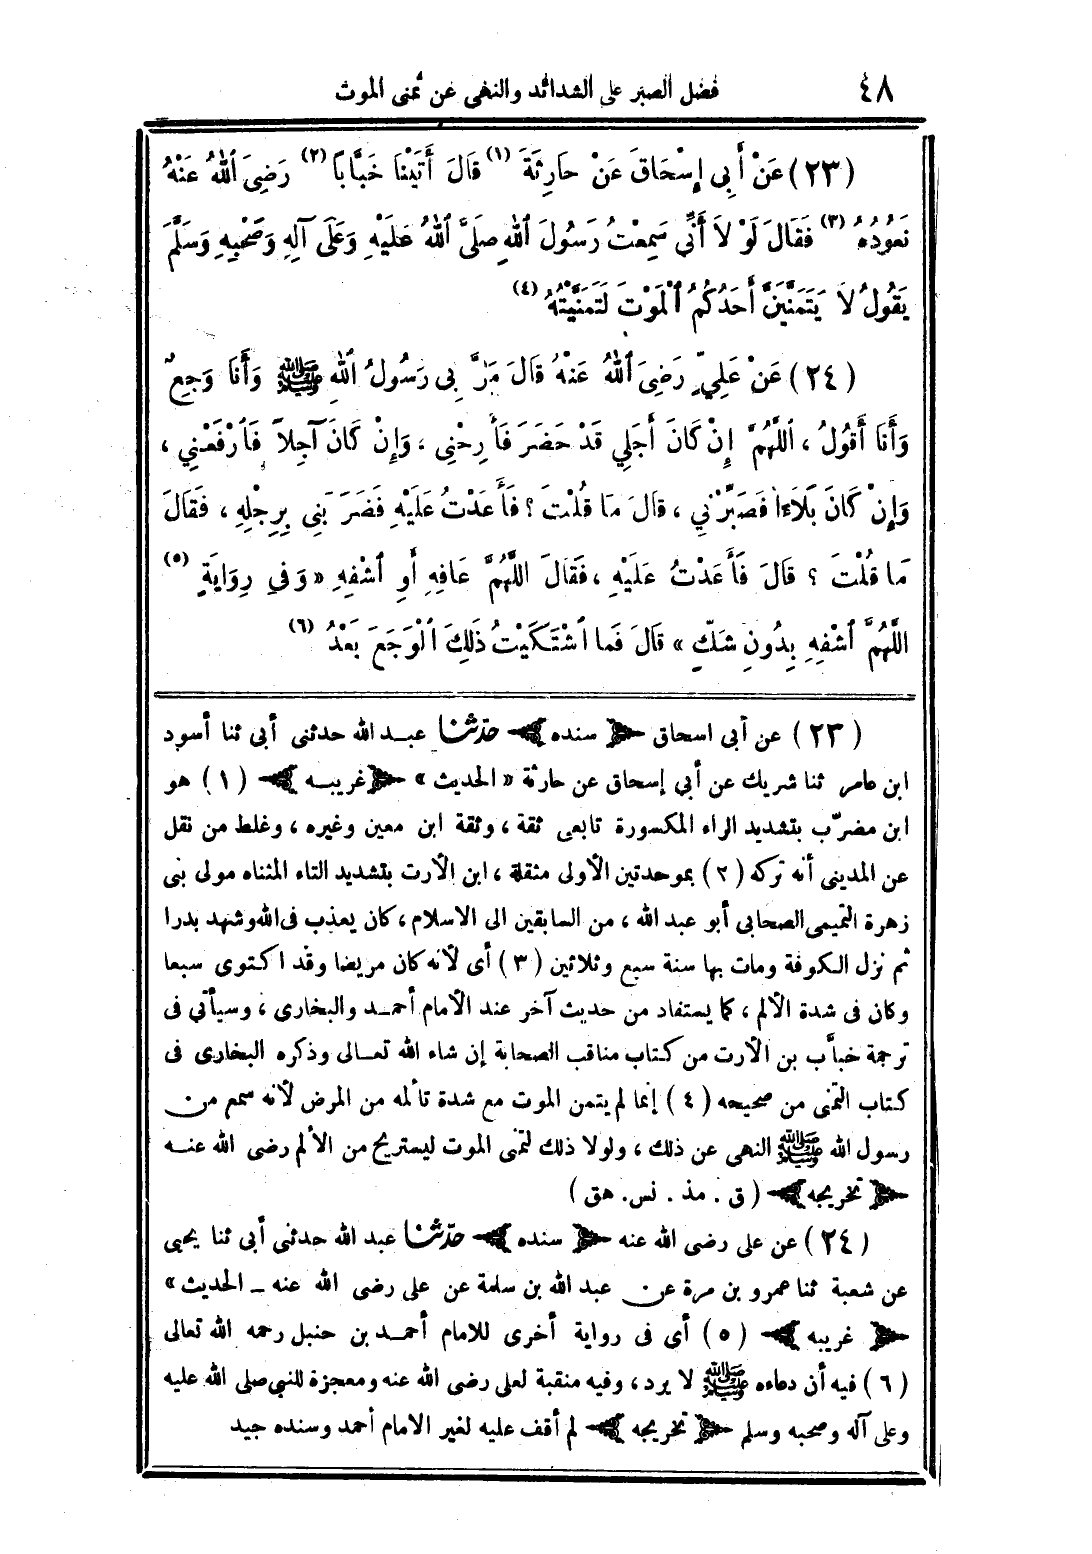 ٤٨ فضل الصبر على الشدائد والنهى عن تمنى الموت
(٢٣) عَنْ أَبِى إِسْحَاقَ عَنْ حَارِثَةَ (١) قَالَ أَتَيْنَا خَبَّابًا (٢) رَضِىَ ٱللهُ عَنْهُ
نَعُودُهُ (٣) فَقَالَ لَوْ لاَ أَنِّى سَمِعْتُ رَسُولَ ٱللهِ صَلَّى ٱللهُ عَلَيْهِ وَعَلَى آلِهِ وَصَحْبِهِ وَسَلَّمَ
يَقُولُ لاَ يَتَمَنَّيَنَّ أَحَدُكُمُ ٱلْمَوْتَ لَتَمَنَّيْتُهُ (٤)
(٢٤) عَنْ عَلِيٍّ رَضِىَ ٱللهُ عَنْهُ قَالَ مَرَّ بِى رَسُولُ ٱللهِ ﷺ وَأَنَا وَجِعٌ
وَأَنَا أَقُولُ ، ٱللَّهُمَّ إِنْ كَانَ أَجَلِي قَدْ حَضَرَ فَأَرِحْنِى ، وَإِنْ كَانَ آجِلاً فَٱرْفَعْنِي ،
وَإِنْ كَانَ بَلَاءً فَصَبِّرْنِي ، قَالَ مَا قُلْتَ ؟ فَأَعَدْتُ عَلَيْهِ فَضَرَبَنِى بِرِجْلِهِ ، فَقَالَ
مَا قُلْتَ ؟ قَالَ فَأَعَدْتُ عَلَيْهِ ، فَقَالَ اللَّهُمَّ عَافِهِ أَوِ ٱشْفِهِ «وَفِى رِوَايَةٍ (٥)
اللَّهُمَّ ٱشْفِهِ بِدُونِ شَكٍّ» قَالَ فَمَا ٱشْتَكَيْتُ ذَلِكَ ٱلْوَجَعَ بَعْدُ (٦)
(٢٣) عن أبى اسحاق ﴿سنده﴾ حدّثنا عبد الله حدثنى أبى ثنا أسود
ابن عامر ثنا شريك عن أبى إسحاق عن حارثة «الحديث» ﴿غريبه﴾ (١) هو
ابن مضرّب بتشديد الراء المكسورة تابعى ثقة ، وثقة ابن معين وغيره ، وغلط من نقل
عن المدينى أنه تركه (٢) بموحدتين الأولى مثقلة ، ابن الأرت بتشديد التاء المثناه مولى بنى
زهرة التميمى الصحابى أبو عبد الله ، من السابقين الى الاسلام ، كان يعذب فى الله وشهد بدرا
ثم نزل الكوفة ومات بها سنة سبع وثلاثين (٣) أى لأنه كان مريضا وقد اكتوى سبعا
وكان فى شدة الألم ، كما يستفاد من حديث آخر عند الأمام أحمد والبخارى ، وسيأتى فى
ترجمة خباب بن الأرت من كتاب مناقب الصحابة إن شاء الله تعالى وذكره البخارى فى
كتاب التمنى من صحيحه (٤) إنما لم يتمن الموت مع شدة تألمه من المرض لأنه سمع من
رسول الله ﷺ النهى عن ذلك ، ولولا ذلك لتمنى الموت ليستريح من الألم رضى الله عنه
﴿تخريجه﴾ (ق . مذ . نس . هق)
(٢٤) عن على رضى الله عنه ﴿سنده﴾ حدّثنا عبد الله حدثنى أبى ثنا يحيى
عن شعبة ثنا عمرو بن مرة عن عبد الله بن سلمة عن على رضى الله عنه ــ الحديث»
﴿غريبه﴾ (٥) أى فى رواية أخرى للامام أحمد بن حنبل رحمه الله تعالى
(٦) فيه أن دعاءه ﷺ لا يرد ، وفيه منقبة لعلى رضى الله عنه ومعجزة للنبى صلى الله عليه
وعلى آله وصحبه وسلم ﴿تخريجه﴾ لم أقف عليه لغير الامام أحمد وسنده جيد